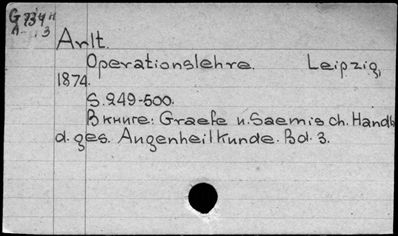 G 734
A-3
Arlt.
Operationslehre. Leipzig,
1874.
S. 249-500.
Вкниге: Graefe u. Saemisch. Handb
d. ges. Augenheilkunde. Bd. 3.